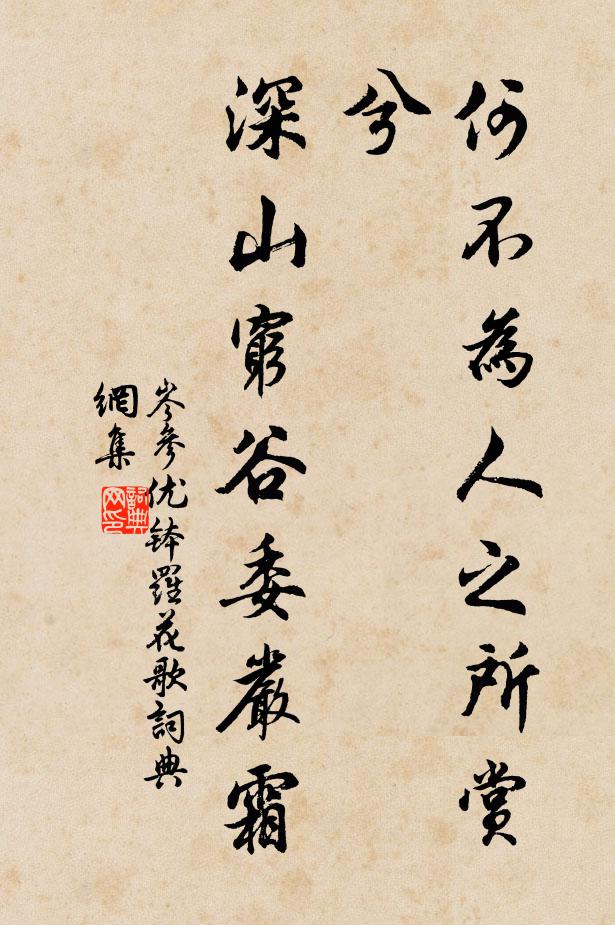 何不為人之所賞
兮
深山窮谷委嚴霜
岑參优钵羅花歌詞典
網集
詞典
网印